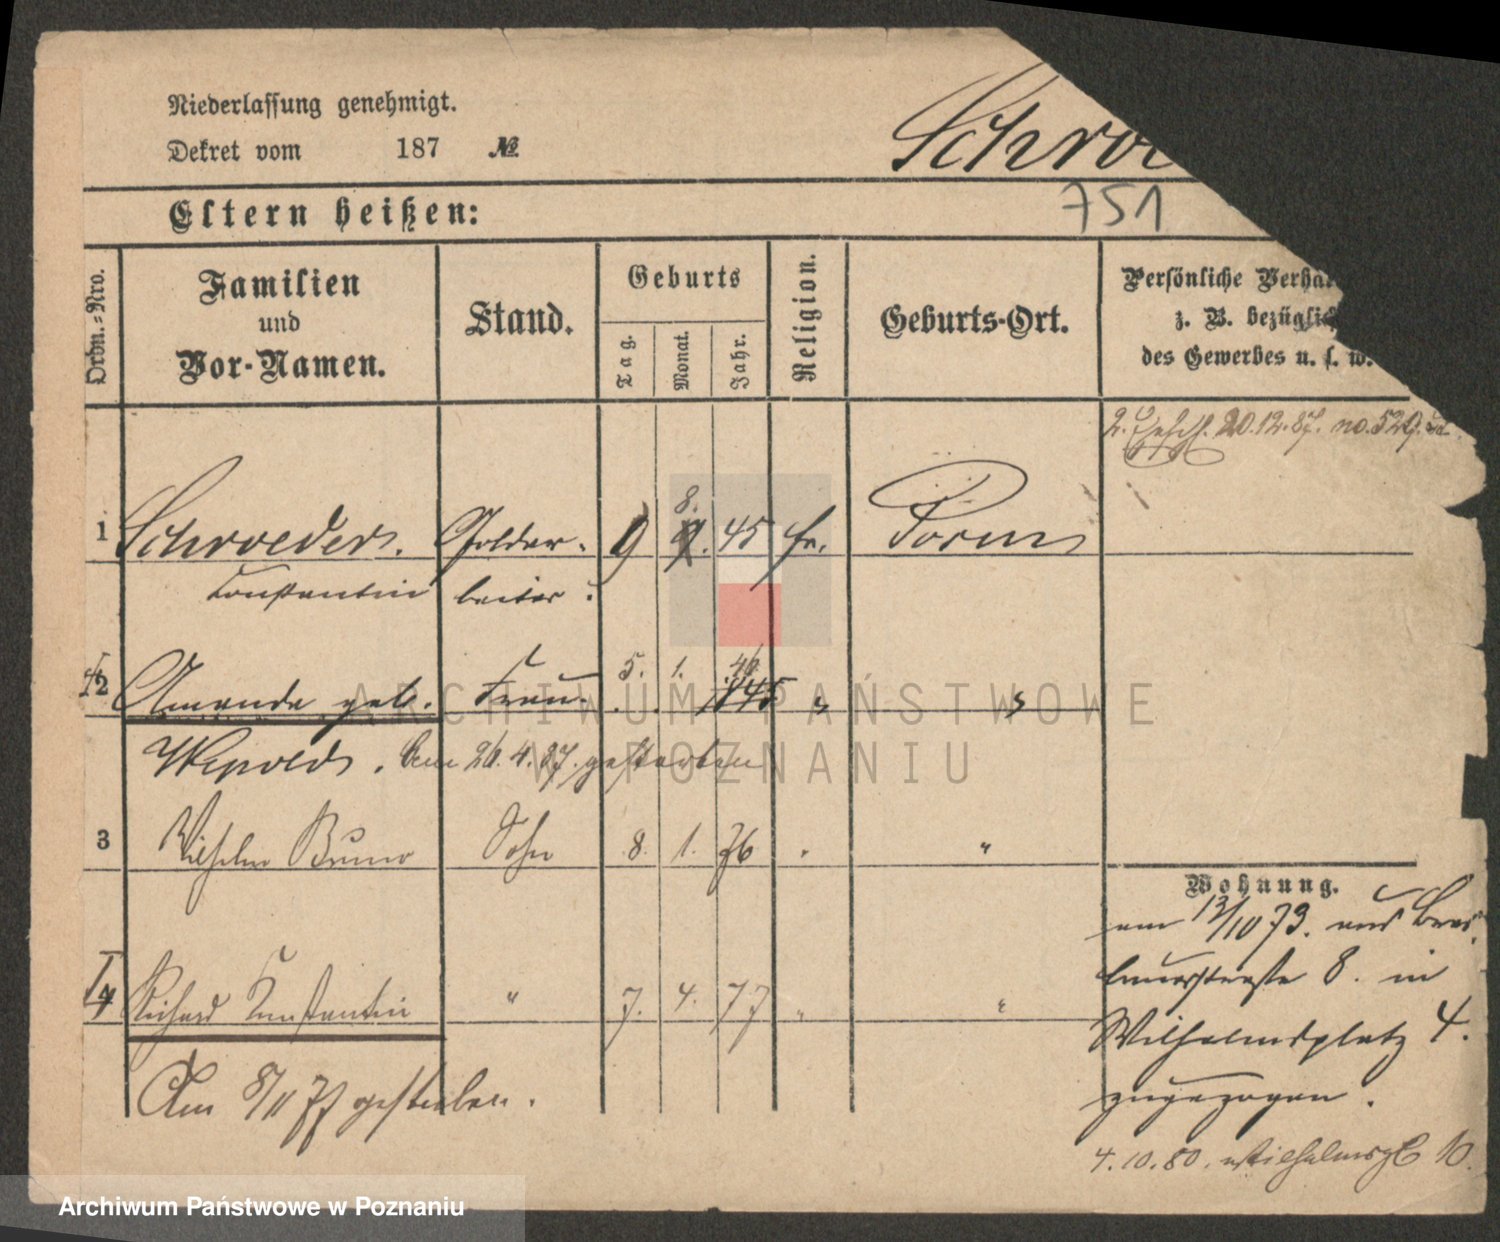 Niederlassung genehmigt.
Dekret vom 187 №
Schroe
751
Eltern heißen:
Ordn.-Nro.
Familien
und
Vor-Namen.
Stand.
Geburts
Tag.
Monat.
Jahr.
Religion.
Geburts-Ort.
Persönliche Verhä
z. B. bezüglich
des Gewerbes u. s. w.
20.12.87. no. 529.
1 Schroeder. Goldar- 9 8. 45 Posen
Constantin beiter.
2 Amanda geb. Frau. 5. 1. 46. 1845 "
Wepold. Am 26.4.87. gestorben
3 Wilhelm Bruno Sohn 8. 1. 76 "
4 Richard Constantin " 7. 4. 77 " "
Am 8/11 77 gestorben.
Wohnung.
am 13/10 79. aus Bres-
lauerstraße 8. in
Wilhelmsplatz 4.
zugezogen.
4.10.80. Wilhelmspl 10.
ARCHIWUM PAŃSTWOWE
W POZNANIU
Archiwum Państwowe w Poznaniu